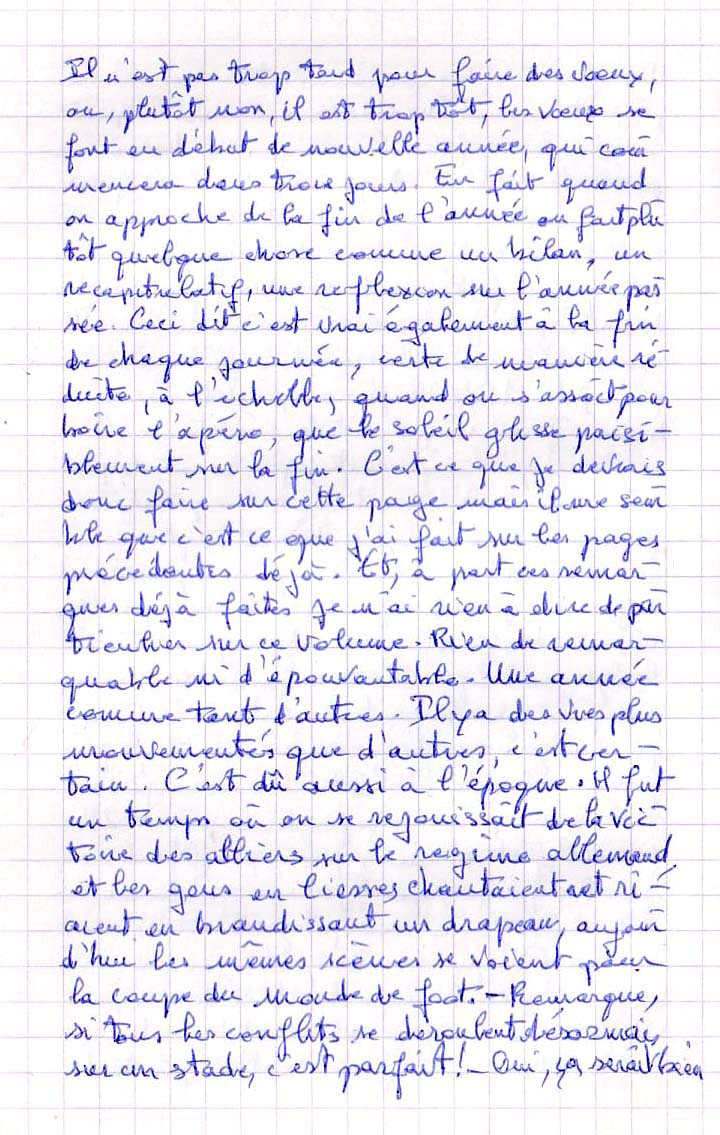 Il n'est pas trop tard pour faire des vœux,
ou, plutôt non, il est trop tôt, les vœux se
font en début de nouvelle année, qui com
mencera dans trois jours. En fait quand
on approche de la fin de l'année on fait plu
tôt quelque chose comme un bilan, un
recapitulatif, une reflexion sur l'année pas
sée. Ceci dit c'est vrai également à la fin
de chaque journée, certe de manière ré
duite, à l'échelle, quand on s'assoit pour
boire l'apéro, que le soleil glisse paisi-
blement sur la fin. C'est ce que je devrais
donc faire sur cette page mais il me sem
ble que c'est ce que j'ai fait sur les pages
précédentes déjà. Et, à part ces remar-
ques déjà faites je n'ai rien à dire de par
ticulier sur ce volume. Rien de remar-
quable ni d'épouvantable. Une année
comme tant d'autres. Il y a des vies plus
mouvementés que d'autres, c'est cer-
tain. C'est dû aussi à l'époque. Il fut
un temps où on se rejouissait de la vic
toire des alliers sur le regime allemand,
et les gens en liesses chantaient et ri-
aient en brandissant un drapeau, aujour
d'hui les mêmes scènes se voient pour
la coupe du monde de foot. - Remarque,
si tous les conflits se déroulent désormais
sur un stade, c'est parfait! - Oui, ça serait bien